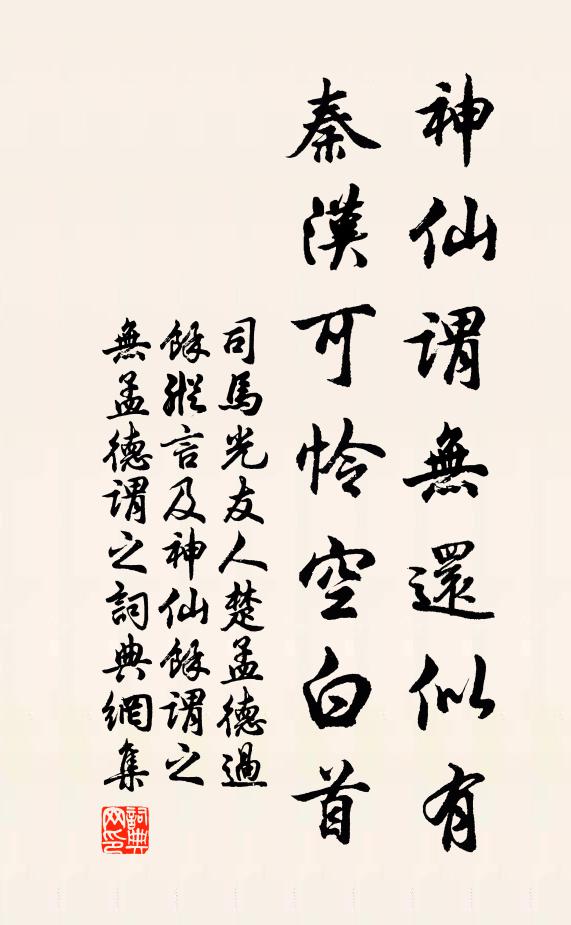 神仙謂無還似有
秦漢可憐空白首
司馬光友人楚孟德過
餘縱言及神仙餘謂之
無孟德謂之詞典網集
詞典
网印